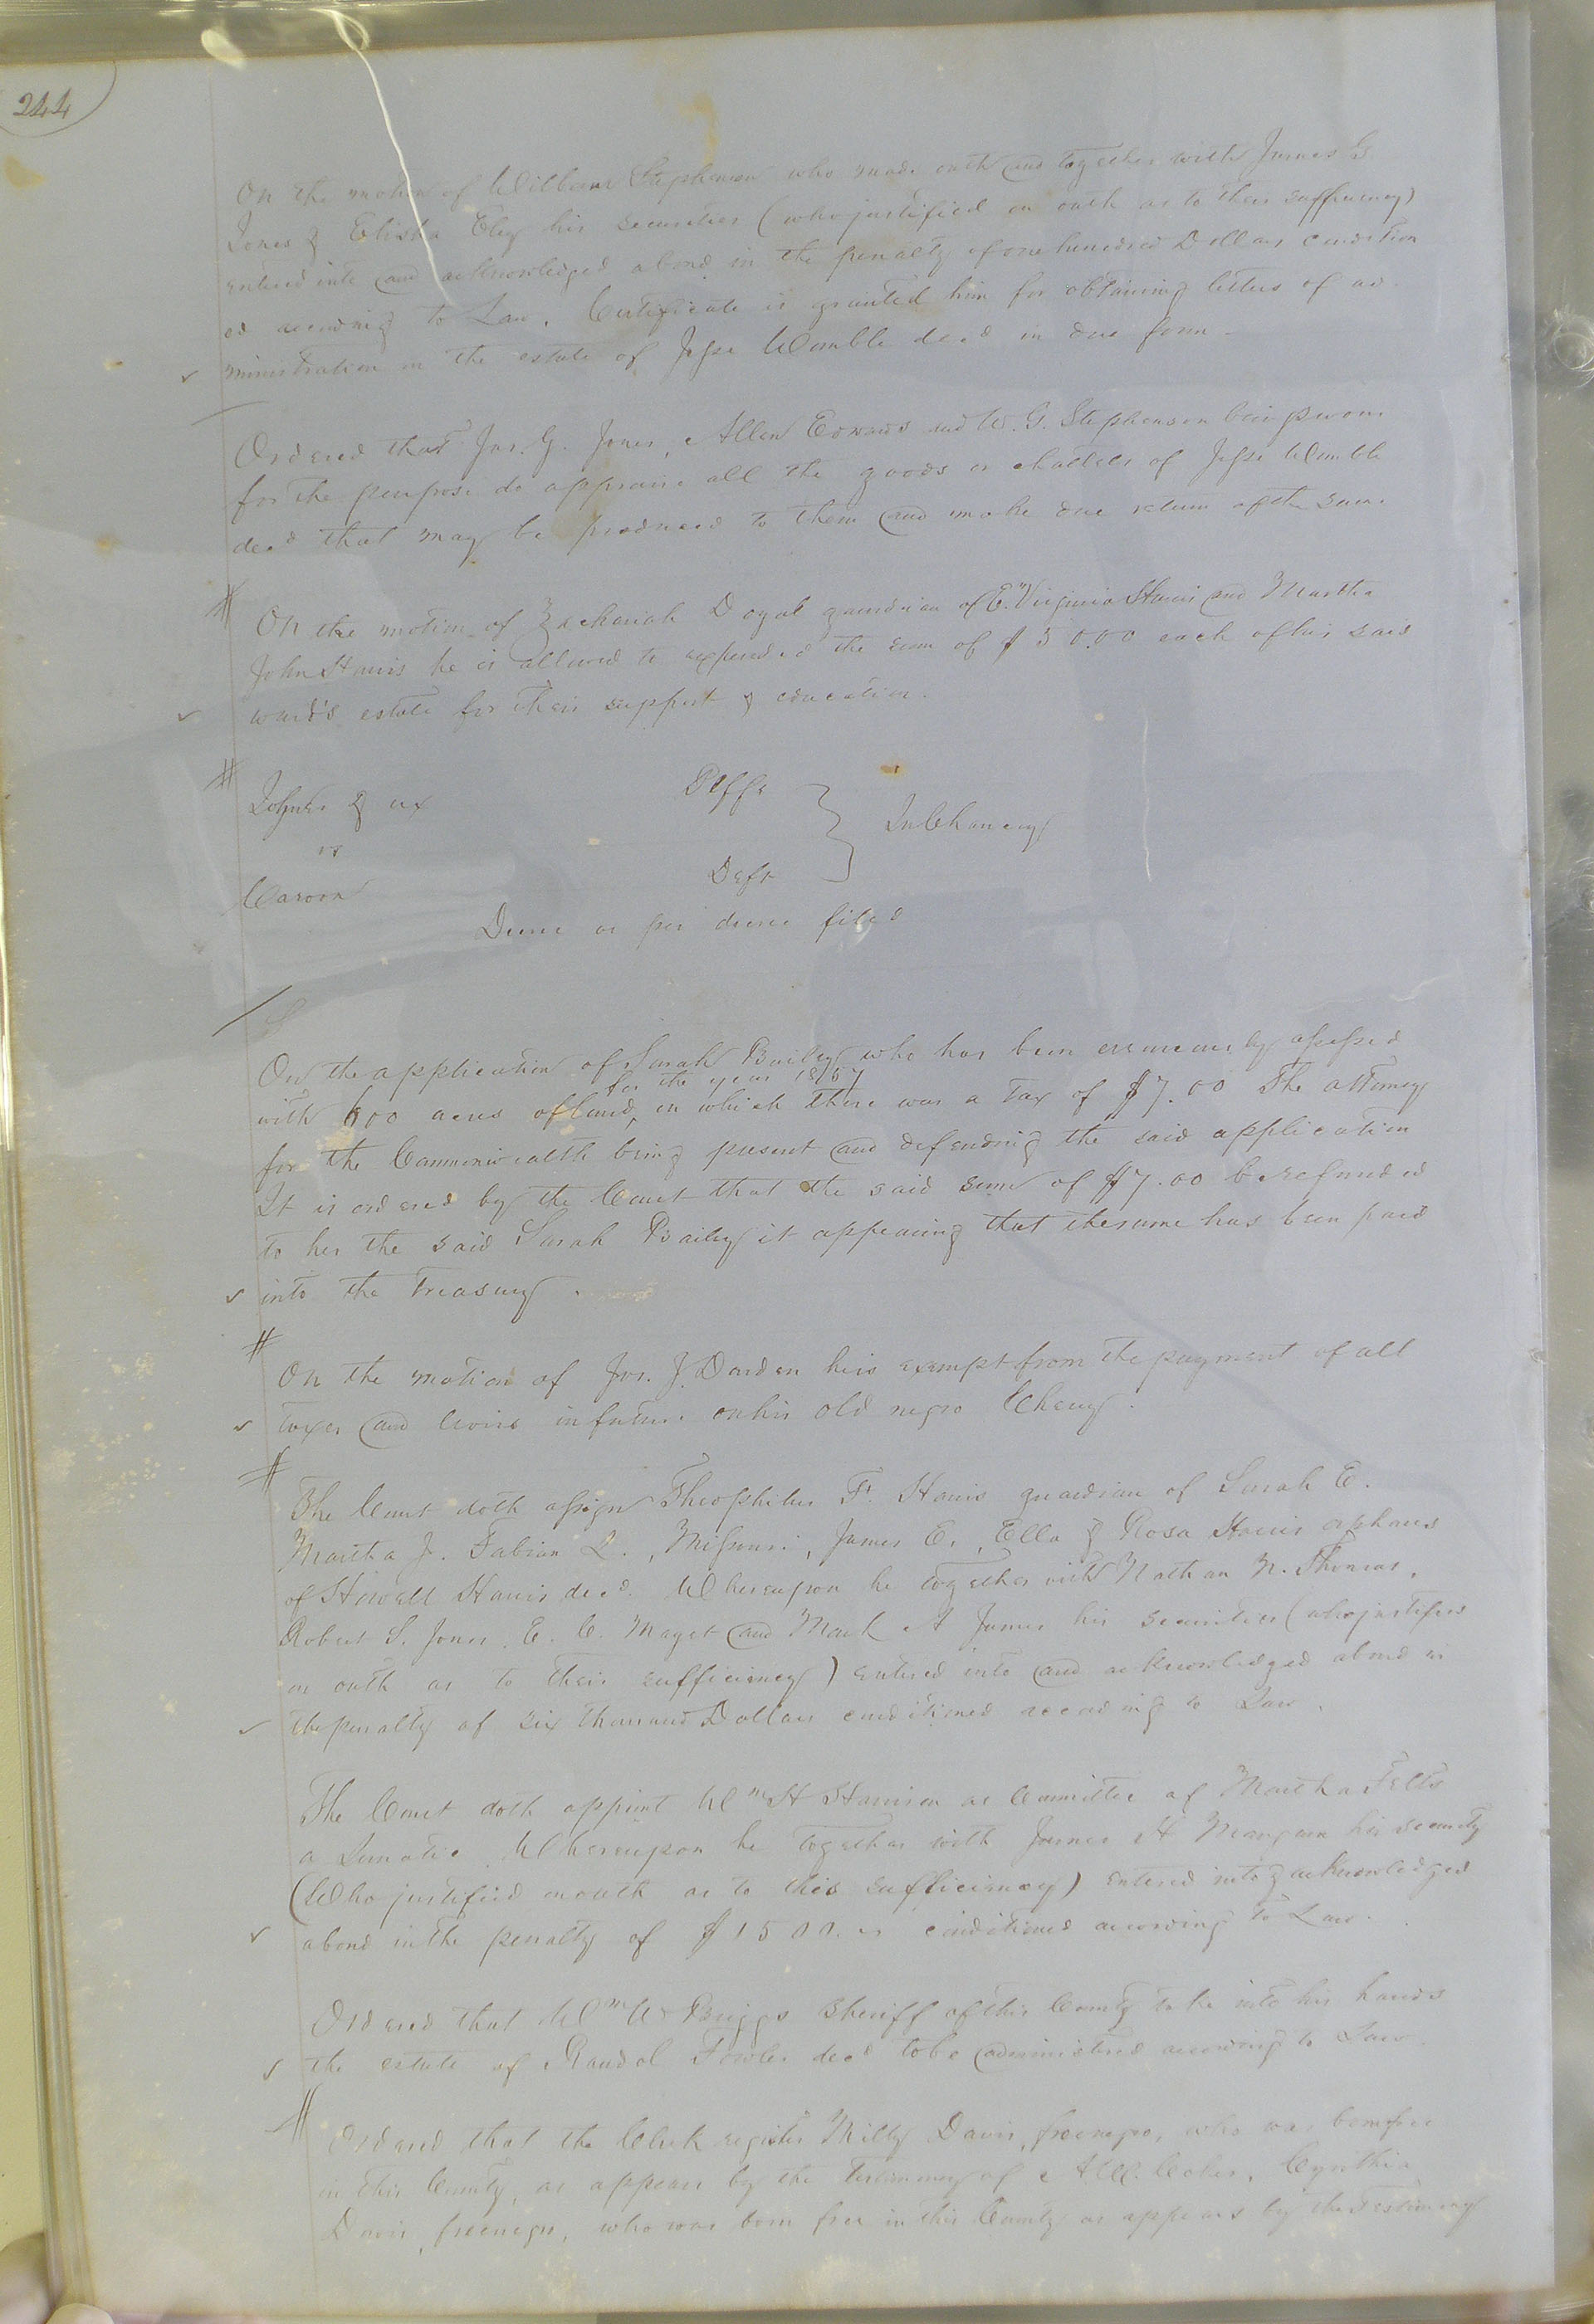 244
On the motion of William Stephenson who made oath and together with James G
Jones & Elisha Eley his securities (who justified on oath as to their sufficiency)
entered into and acknowledged a bond in the penalty of one hundred Dollars condition
ed according to Law. Certificate is granted him for obtaining letters of ad
ministration on the estate of Jesse Womble decd in due form
Ordered that Jas. G. Jones, Allen Edwards and W. G. Stephenson being sworn
for the purpose do appraise all the goods or chattels of Jesse Womble
decd that may be produced to them and make due return of the same
On the motion of Zachariah Doyal guardian of E. Virginia Harris and Martha
John Harris he is allowed to expended the sum of $50.00 each of his said
ward's estate for their support & education.
Joyner & ux Plffs
vs In Chancery
Deft
Decree as per decree filed
On the application of Sarah Bailey who has been erroneously assessed
for the year 1857
with 600 acres of land, on which there was a tax of $7.00 The attorney
for the Commonwealth being present and defending the said application
It is ordered by the Court that the said sum of $7.00 be refunded
to her the said Sarah Bailey it appearing that the same has been paid
into the Treasury.
On the motion of Jas. J. Darden he is exempt from the payment of all
taxes and levies in future on his old negro Cherry.
The Court doth assign Theophilus F. Harris guardian of Sarah E.
Martha J. Fabian L., Missouri, James E., Ella & Rosa Harris orphans
of Howell Harris decd. Whereupon he together with Nathan N. Thomas,
Robert S. Jones, E. C. Maget and Mark A James his securities (who justified
on oath as to their sufficiency) entered into and acknowledged a bond in
the penalty of six thousand Dollars conditioned according to Law.
The Court doth appoint Wm H Harrison as Committee of Martha Felts
a Lunatic. Whereupon he together with James H Mangum his security
(Who justified on oath as to this sufficiency) entered into & acknowledged
a bond in the penalty of $1500. conditioned according to Law.
Ordered that Wm W Briggs Sheriff of this County take into his hands
the estate of Randol Fowler decd to be administered according to Law.
Ordered that the Clerk register Milly Davis, free negro, who was born free
in this County, as appears by the testimony of Coles, Cynthia
Davis, free negro, who was born free in this County as appears by the testimony